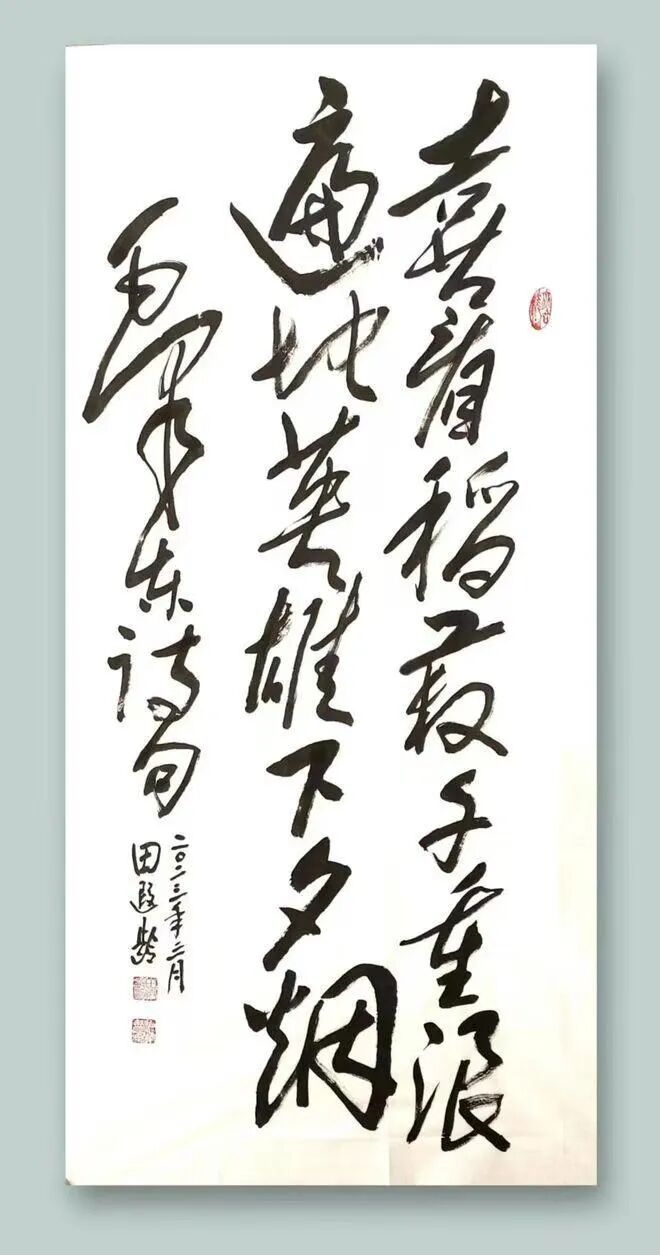 喜看稻菽千重浪
遍地英雄下夕烟
毛泽东诗句
二〇二三年
田遐龄